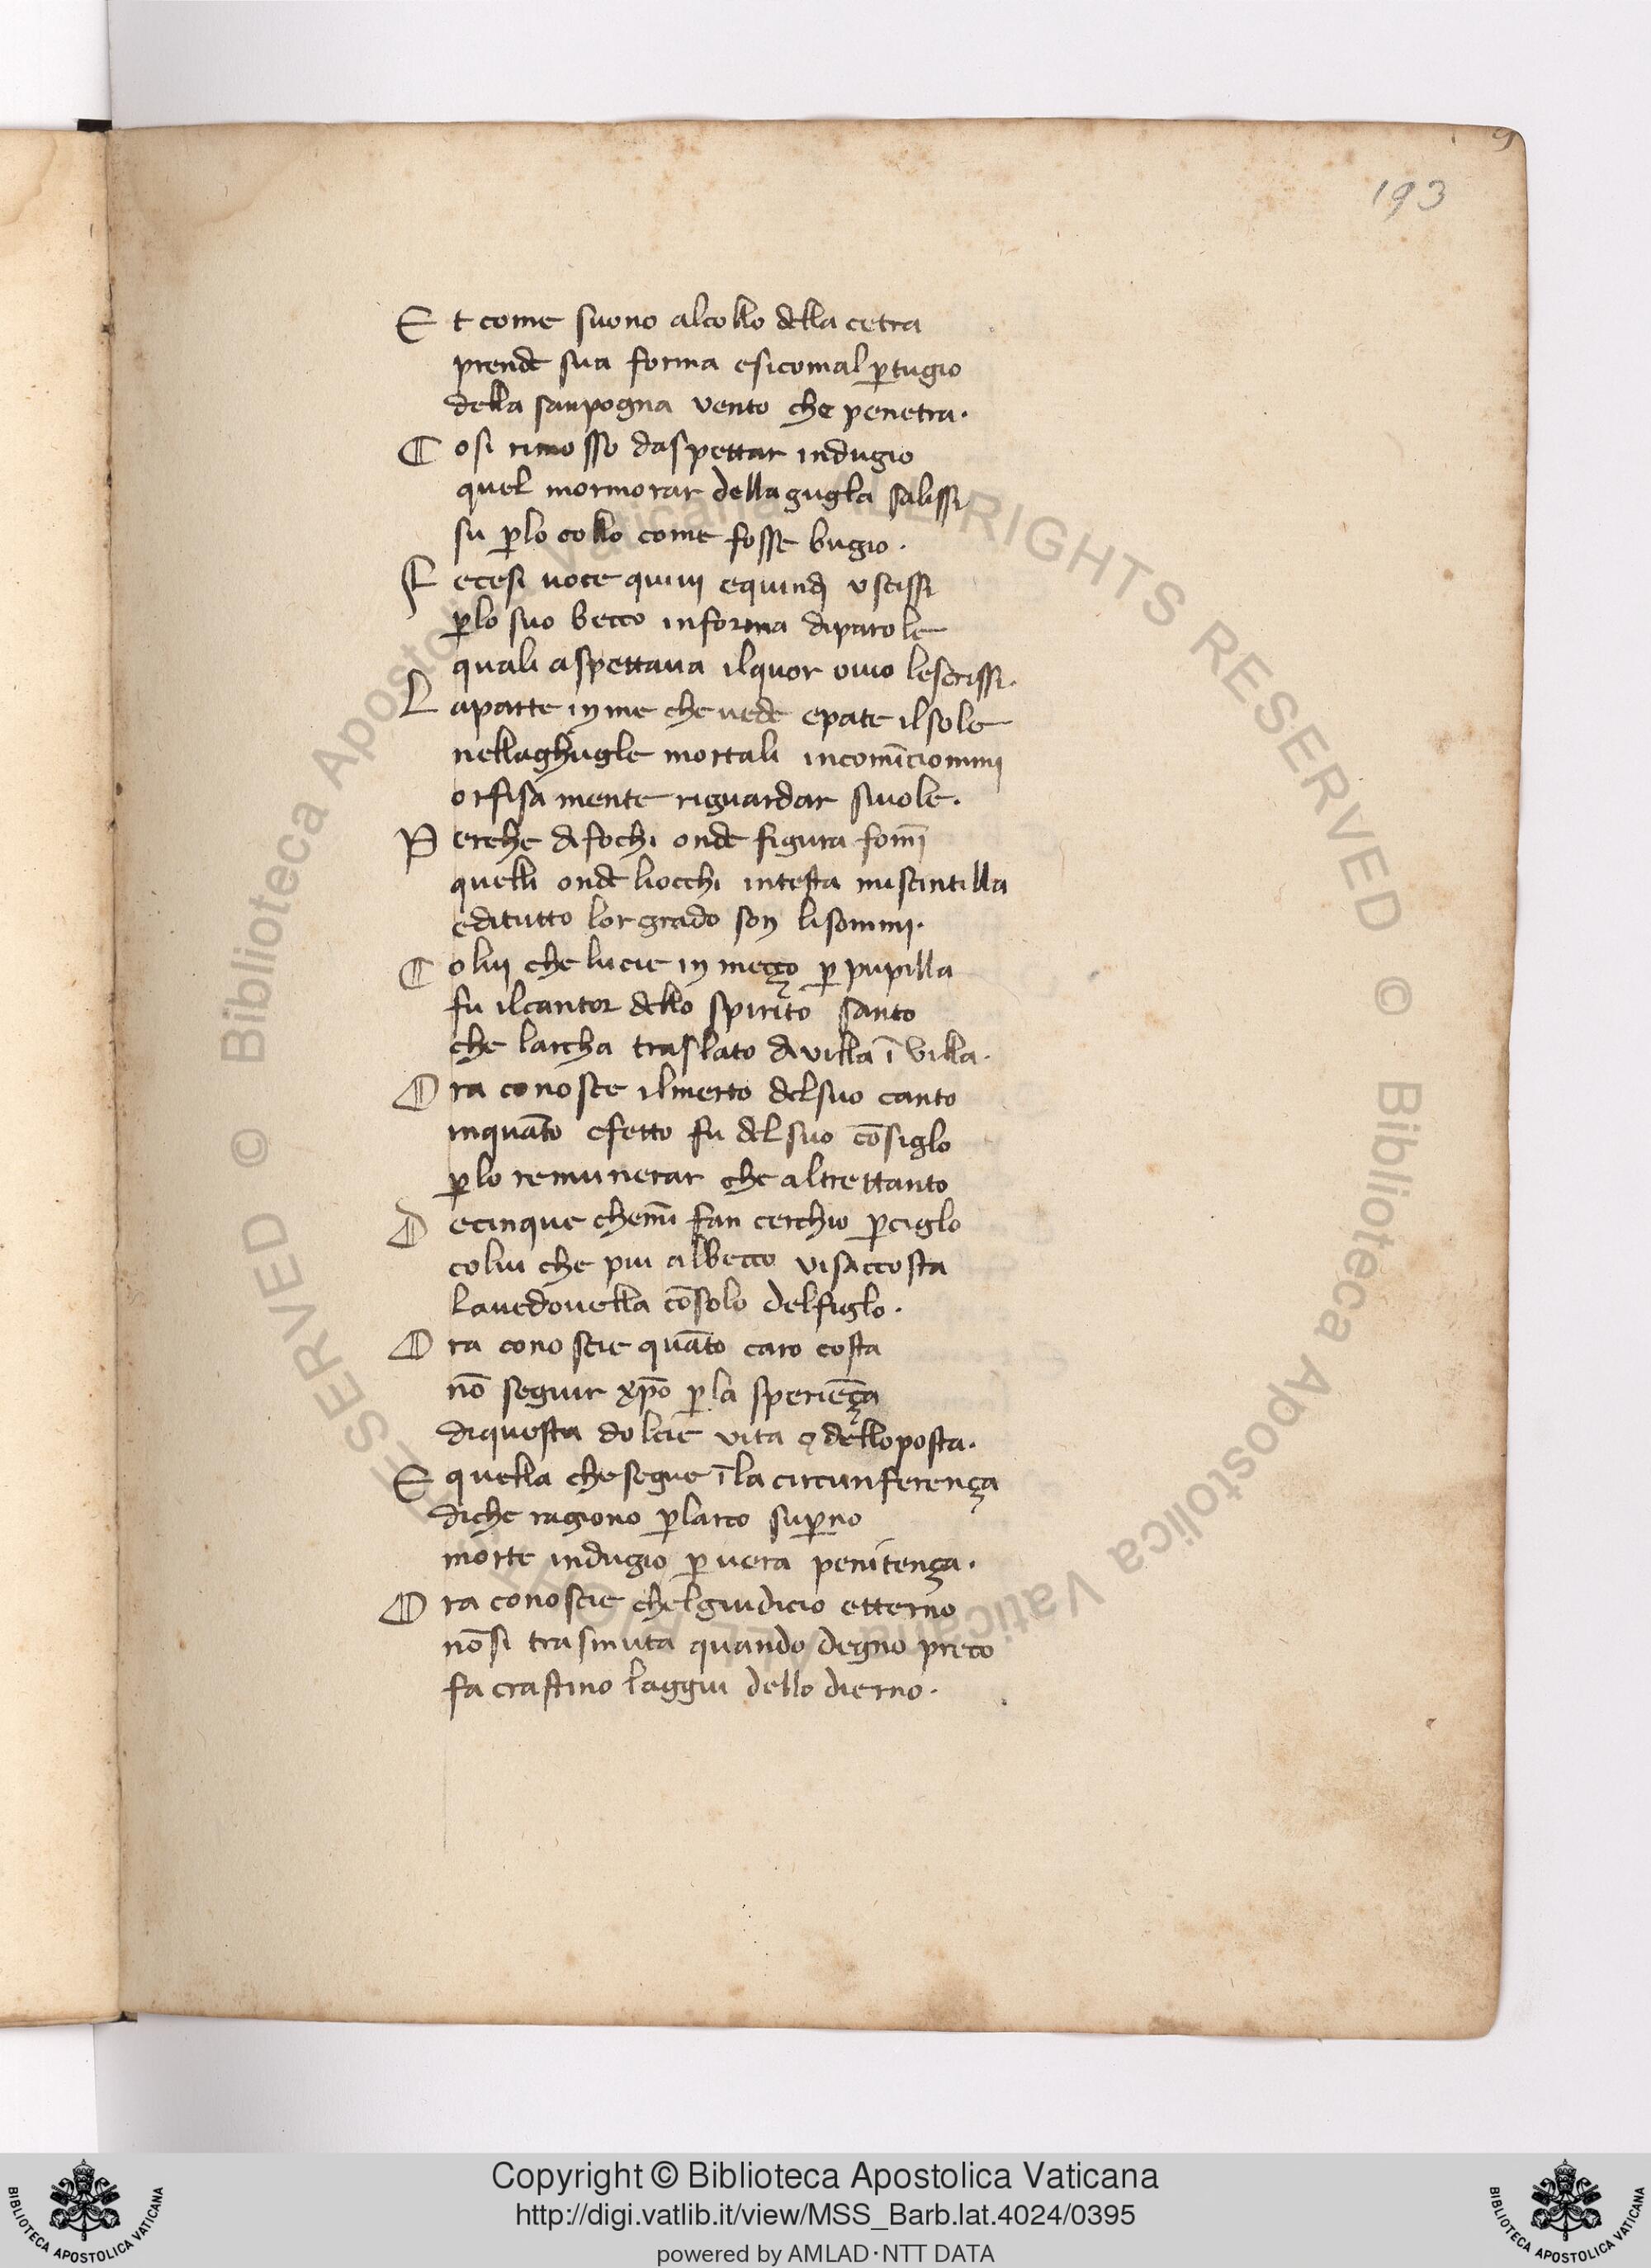 193
Et come suono alcollo della cetra
prende sua forma esicomal ꝑtugio
della sanpogna vento che penetra.
Cosi rimosso daspettar indugio
quel mormorar della gugla salissi
su ꝑlo collo come fosse bugio.
Fecesi uoce quiui equindi uscissi
ꝑlo suo becco informa diparole
quali aspettaua ilquor ouio lescrissi.
Laparte inme che uede epate ilsole
nellaghugle mortali incomīciommi
orfisa mente riguardar siuole.
Perche di fochi onde figura fomī
quelli onde liocchi intesta miscintilla
editutto lor grado son lisommi.
Colui che lucie in meçço ꝑ pupilla
fu ilcantor dello spirito santo
che larcha traslato diuilla ī villa.
Ora conosce ilmerto delsuo canto
inquāto efetto fu del suo cōsiglo
ꝑlo remunerar che altrettanto
Decinque chemī fan cerchio ꝑciglo
colui che piu albecco visaccosta
lauedouella cōsolo delfiglo.
Ora conoscie quāto caro costa
nō seguir xp̄o ꝑ la speriēça
diquesta dolcie vita ꝯ delloposta.
E quella chesegue ī la circunferença
diche ragiono ꝑlarco suꝑno
morte indugio ꝑ uera penitença.
Ora conoscie chelgiudicio etterno
nōsi trasmuta quando degno preco
fa crastino laggiu dello dierno.
© Biblioteca Apostolica Vaticana ALL RIGHTS RESERVED
© Biblioteca Apostolica Vaticana ALL RIGHTS RESERVED
Copyright © Biblioteca Apostolica Vaticana
http://digi.vatlib.it/view/MSS_Barb.lat.4024/0395
powered by AMLAD·NTT DATA
BIBLIOTECA APOSTOLICA VATICANA
BIBLIOTECA APOSTOLICA VATICANA